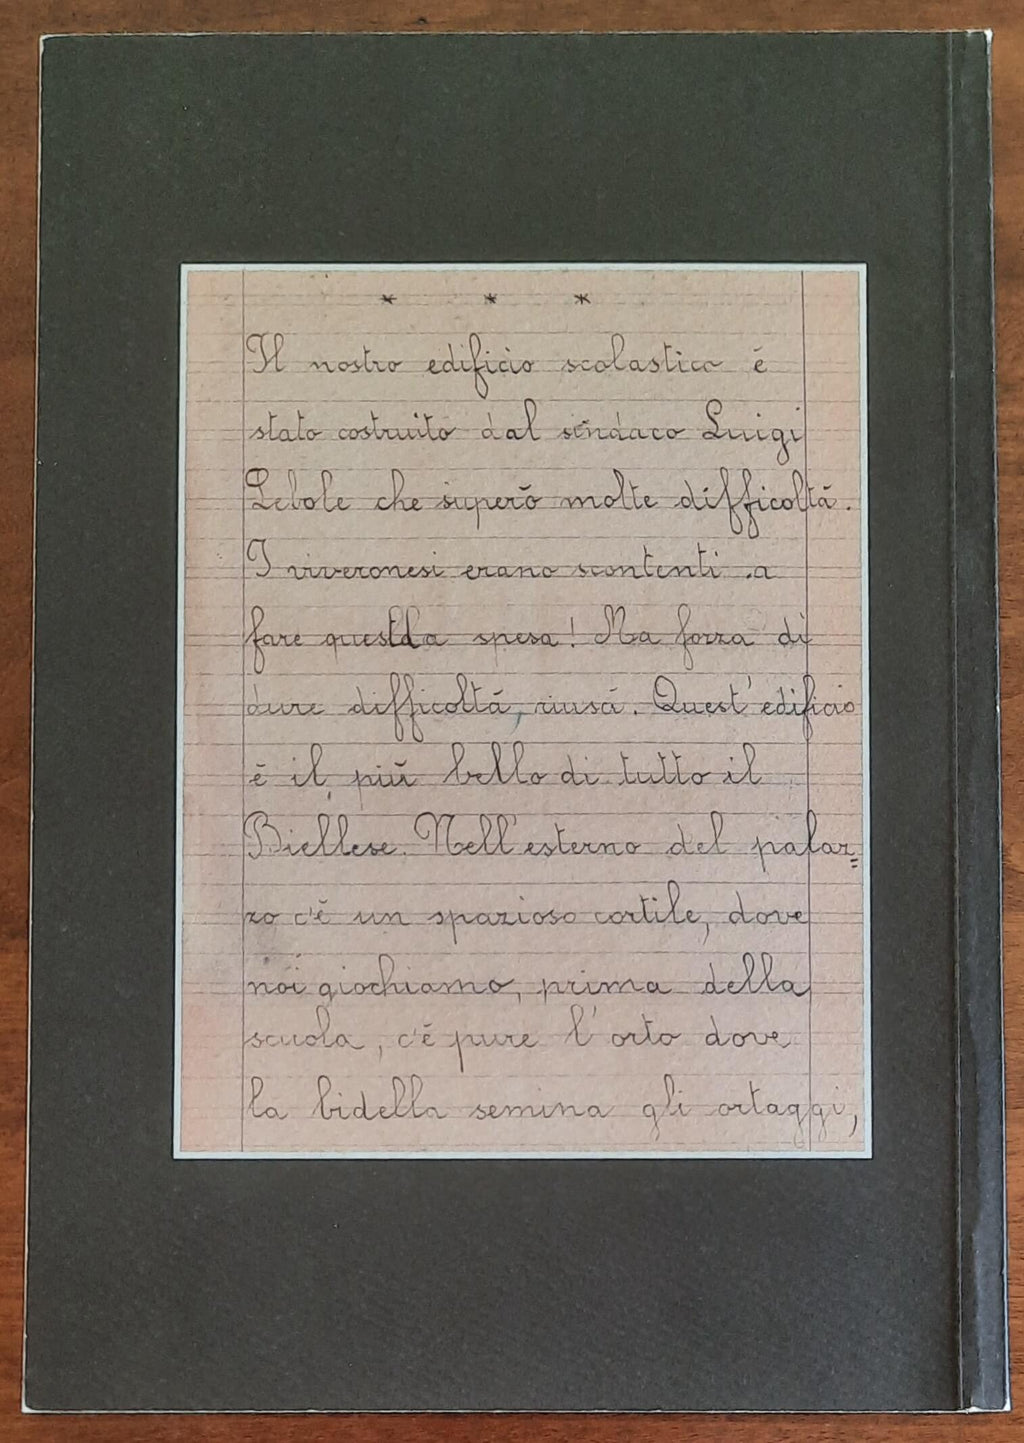 * * *
Il nostro edificio scolastico è
stato costruito dal sindaco Luigi
Lebole che superò molte difficoltà.
I viveronesi erano scontenti a
fare questa spesa! Ma forza di
dure difficoltà, riuscì. Quest'edificio
è il più bello di tutto il
Biellese. Nell'esterno del palaz=
zo c'è un spazioso cortile, dove
noi giochiamo, prima della
scuola, c'è pure l'orto dove
la bidella semina gli ortaggi,